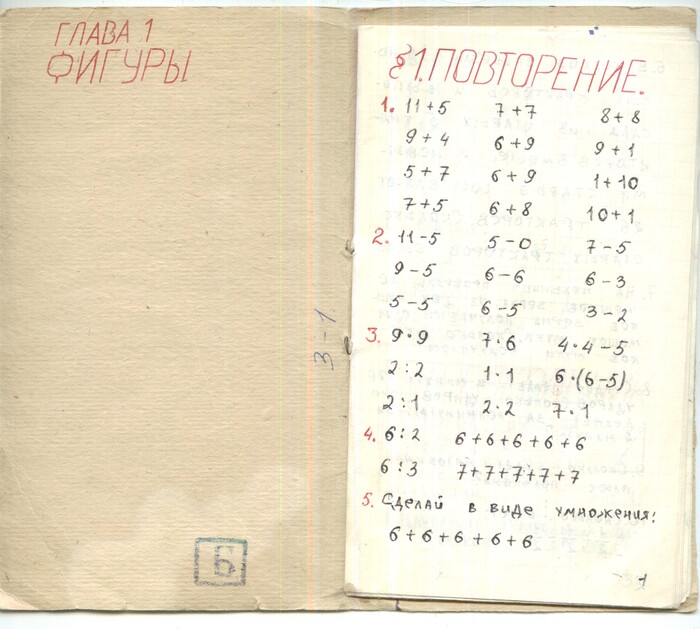 ГЛАВА 1
ФИГУРЫ
Б
3-1
§1. ПОВТОРЕНИЕ.
1. 11+5 7+7 8+8
9+4 6+9 9+1
5+7 6+9 1+10
7+5 6+8 10+1
2. 11-5 5-0 7-5
9-5 6-6 6-3
5-5 6-5 3-2
3. 9·9 7·6 4·4-5
2:2 1·1 6·(6-5)
2:1 2·2 7·1
4. 6:2 6+6+6+6+6
6:3 7+7+7+7+7
5. Сделай в виде умножения!
6+6+6+6+6
1